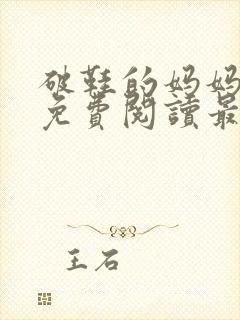 破鞋的妈妈
免費閱讀最
王石